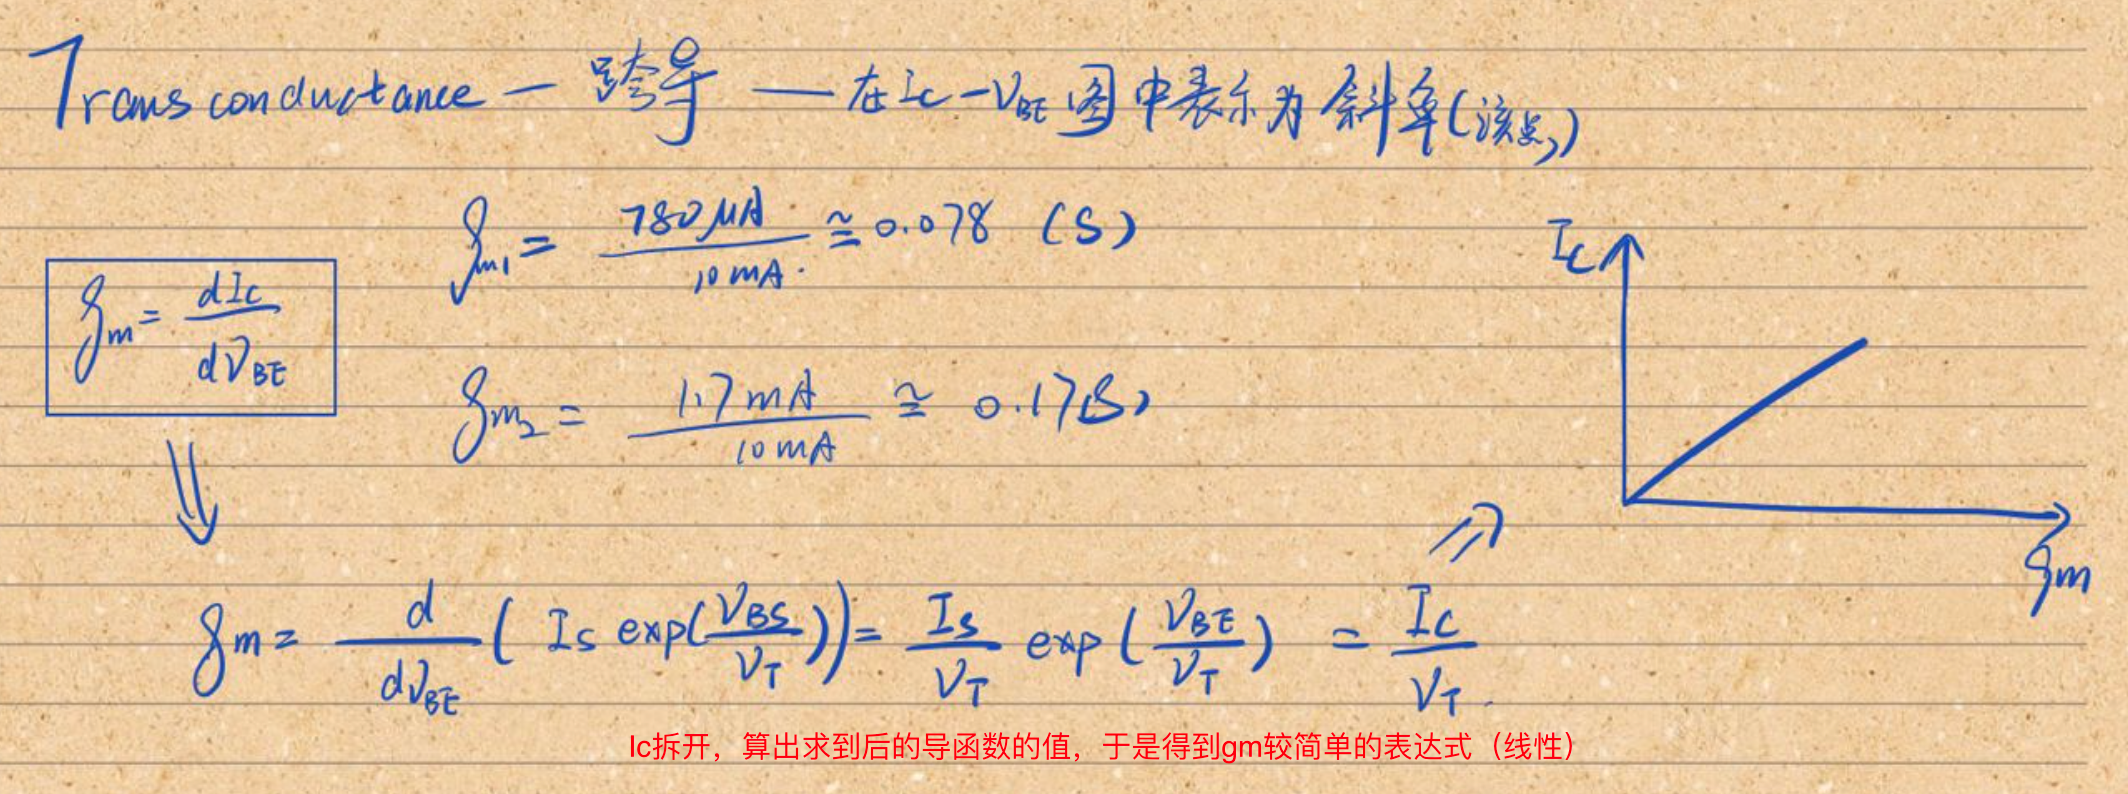 Transconductance — 跨导 — 在Ic-VBE图中表示为斜率(该点)
gm1 = 780μA / 10mA. ≅ 0.078 (S)
Ic
gm = dIc / dVBE
gm2 = 1.7mA / 10mA ≅ 0.17(S)
gm
gm = d / dVBE ( Is exp(VBS / VT)) = Is / VT exp (VBE / VT) = Ic / VT.
Ic拆开，算出求到后的导函数的值，于是得到gm较简单的表达式（线性）